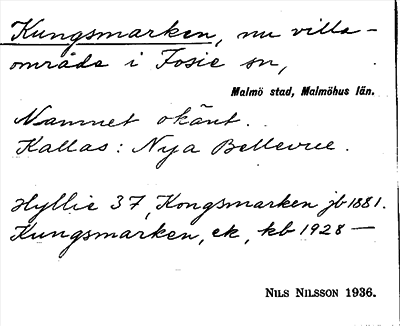 Kungsmarken, nu villa-
område i Fosie sn,
Malmö stad, Malmöhus län.
Namnet okänt.
Kallas: Nya Bellevue.
Hyllie 37, Kongsmarken jb 1881.
Kungsmarken, ek, kb 1928 —
NILS NILSSON 1936.